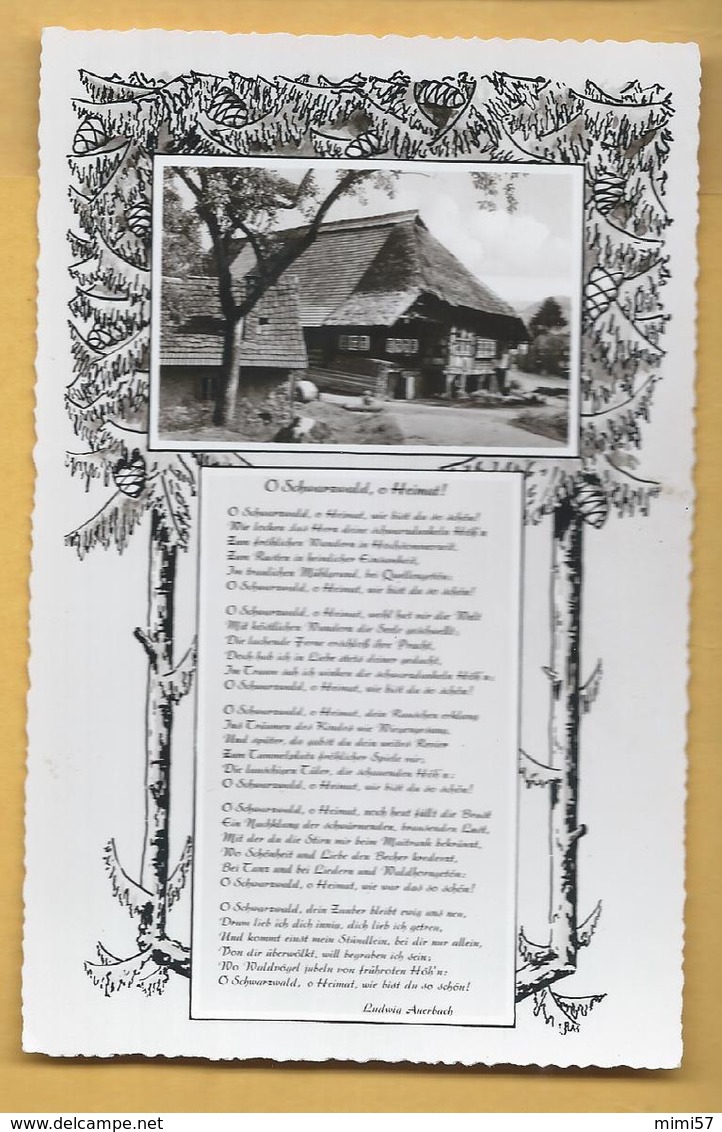 O Schwarzwald, o Heimat!
O Schwarzwald, o Heimat, wie bist du so schön!
Wie locken das Herz deine schwarzdunkeln Höh'n
Zum fröhlichen Wandern in Hochsommerzeit,
Zum Rasten in heimlicher Einsamkeit,
Im traulichen Mühlgrund, bei Quellengetön:
O Schwarzwald, o Heimat, wie bist du so schön!
O Schwarzwald, o Heimat, wohl hat mir die Welt
Mit köstlichen Wundern die Seele geschwellt;
Die lachende Ferne erschloß ihre Pracht,
Doch hab ich in Liebe stets deiner gedacht,
Im Traum sah ich winken die schwarzdunkeln Höh'n:
O Schwarzwald, o Heimat, wie bist du so schön!
O Schwarzwald, o Heimat, dein Rauschen erklang
Ins Träumen des Kindes wie Wiegengesang,
Und später, da gabst du dein weites Revier
Zum Tummelplatz fröhlicher Spiele mir;
Die lauschigen Täler, die schauenden Höh'n:
O Schwarzwald, o Heimat, wie bist du so schön!
O Schwarzwald, o Heimat, noch heut füllt die Brust
Ein Nachklang der schwärmenden, brausenden Lust,
Mit der du die Stirn mir beim Maitrunk bekränzt,
Wo Schönheit und Liebe den Becher kredenzt,
Bei Tanz und bei Liedern und Waldhorngetön:
O Schwarzwald, o Heimat, wie war das so schön!
O Schwarzwald, dein Zauber bleibt ewig uns neu,
Drum lieb ich dich innig, dich lieb ich getreu,
Und kommt einst mein Stündlein, bei dir nur allein,
Von dir überwölkt, will begraben ich sein;
Wo Waldvögel jubeln von frühroten Höh'n:
O Schwarzwald, o Heimat, wie bist du so schön!
Ludwig Auerbach
delcampe.net
mimi57